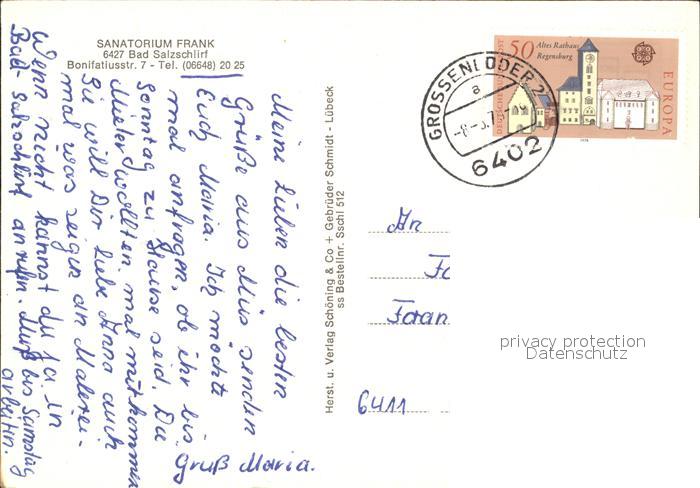 SANATORIUM FRANK
6427 Bad Salzschlirf
Bonifatiusstr. 7 - Tel. (06648) 20 25
Meine Lieben die besten
Grüße aus Müs senden
Euch Maria. Ich möchte
mal anfragen, ob ihr bis
Sonntag zu Hause seid. Die
Mieter wollten mal mitkommen
Sie will Dir liebe Anna auch
mal was zeigen an Malerei-
Wenn nicht kannst du ja in
Bad-Salzschlirf anrufen. Muß bis Samstag
arbeiten.
Gruß Maria.
Herst. u. Verlag Schöning & Co + Gebrüder Schmidt - Lübeck
ss Bestellnr. Sschl 512
DEUTSCHE BUNDESPOST
50
Altes Rathaus
Regensburg
EUROPA
GROSSENLÜDER 2
a
6402
An
Fran
6411
privacy protection
Datenschutz